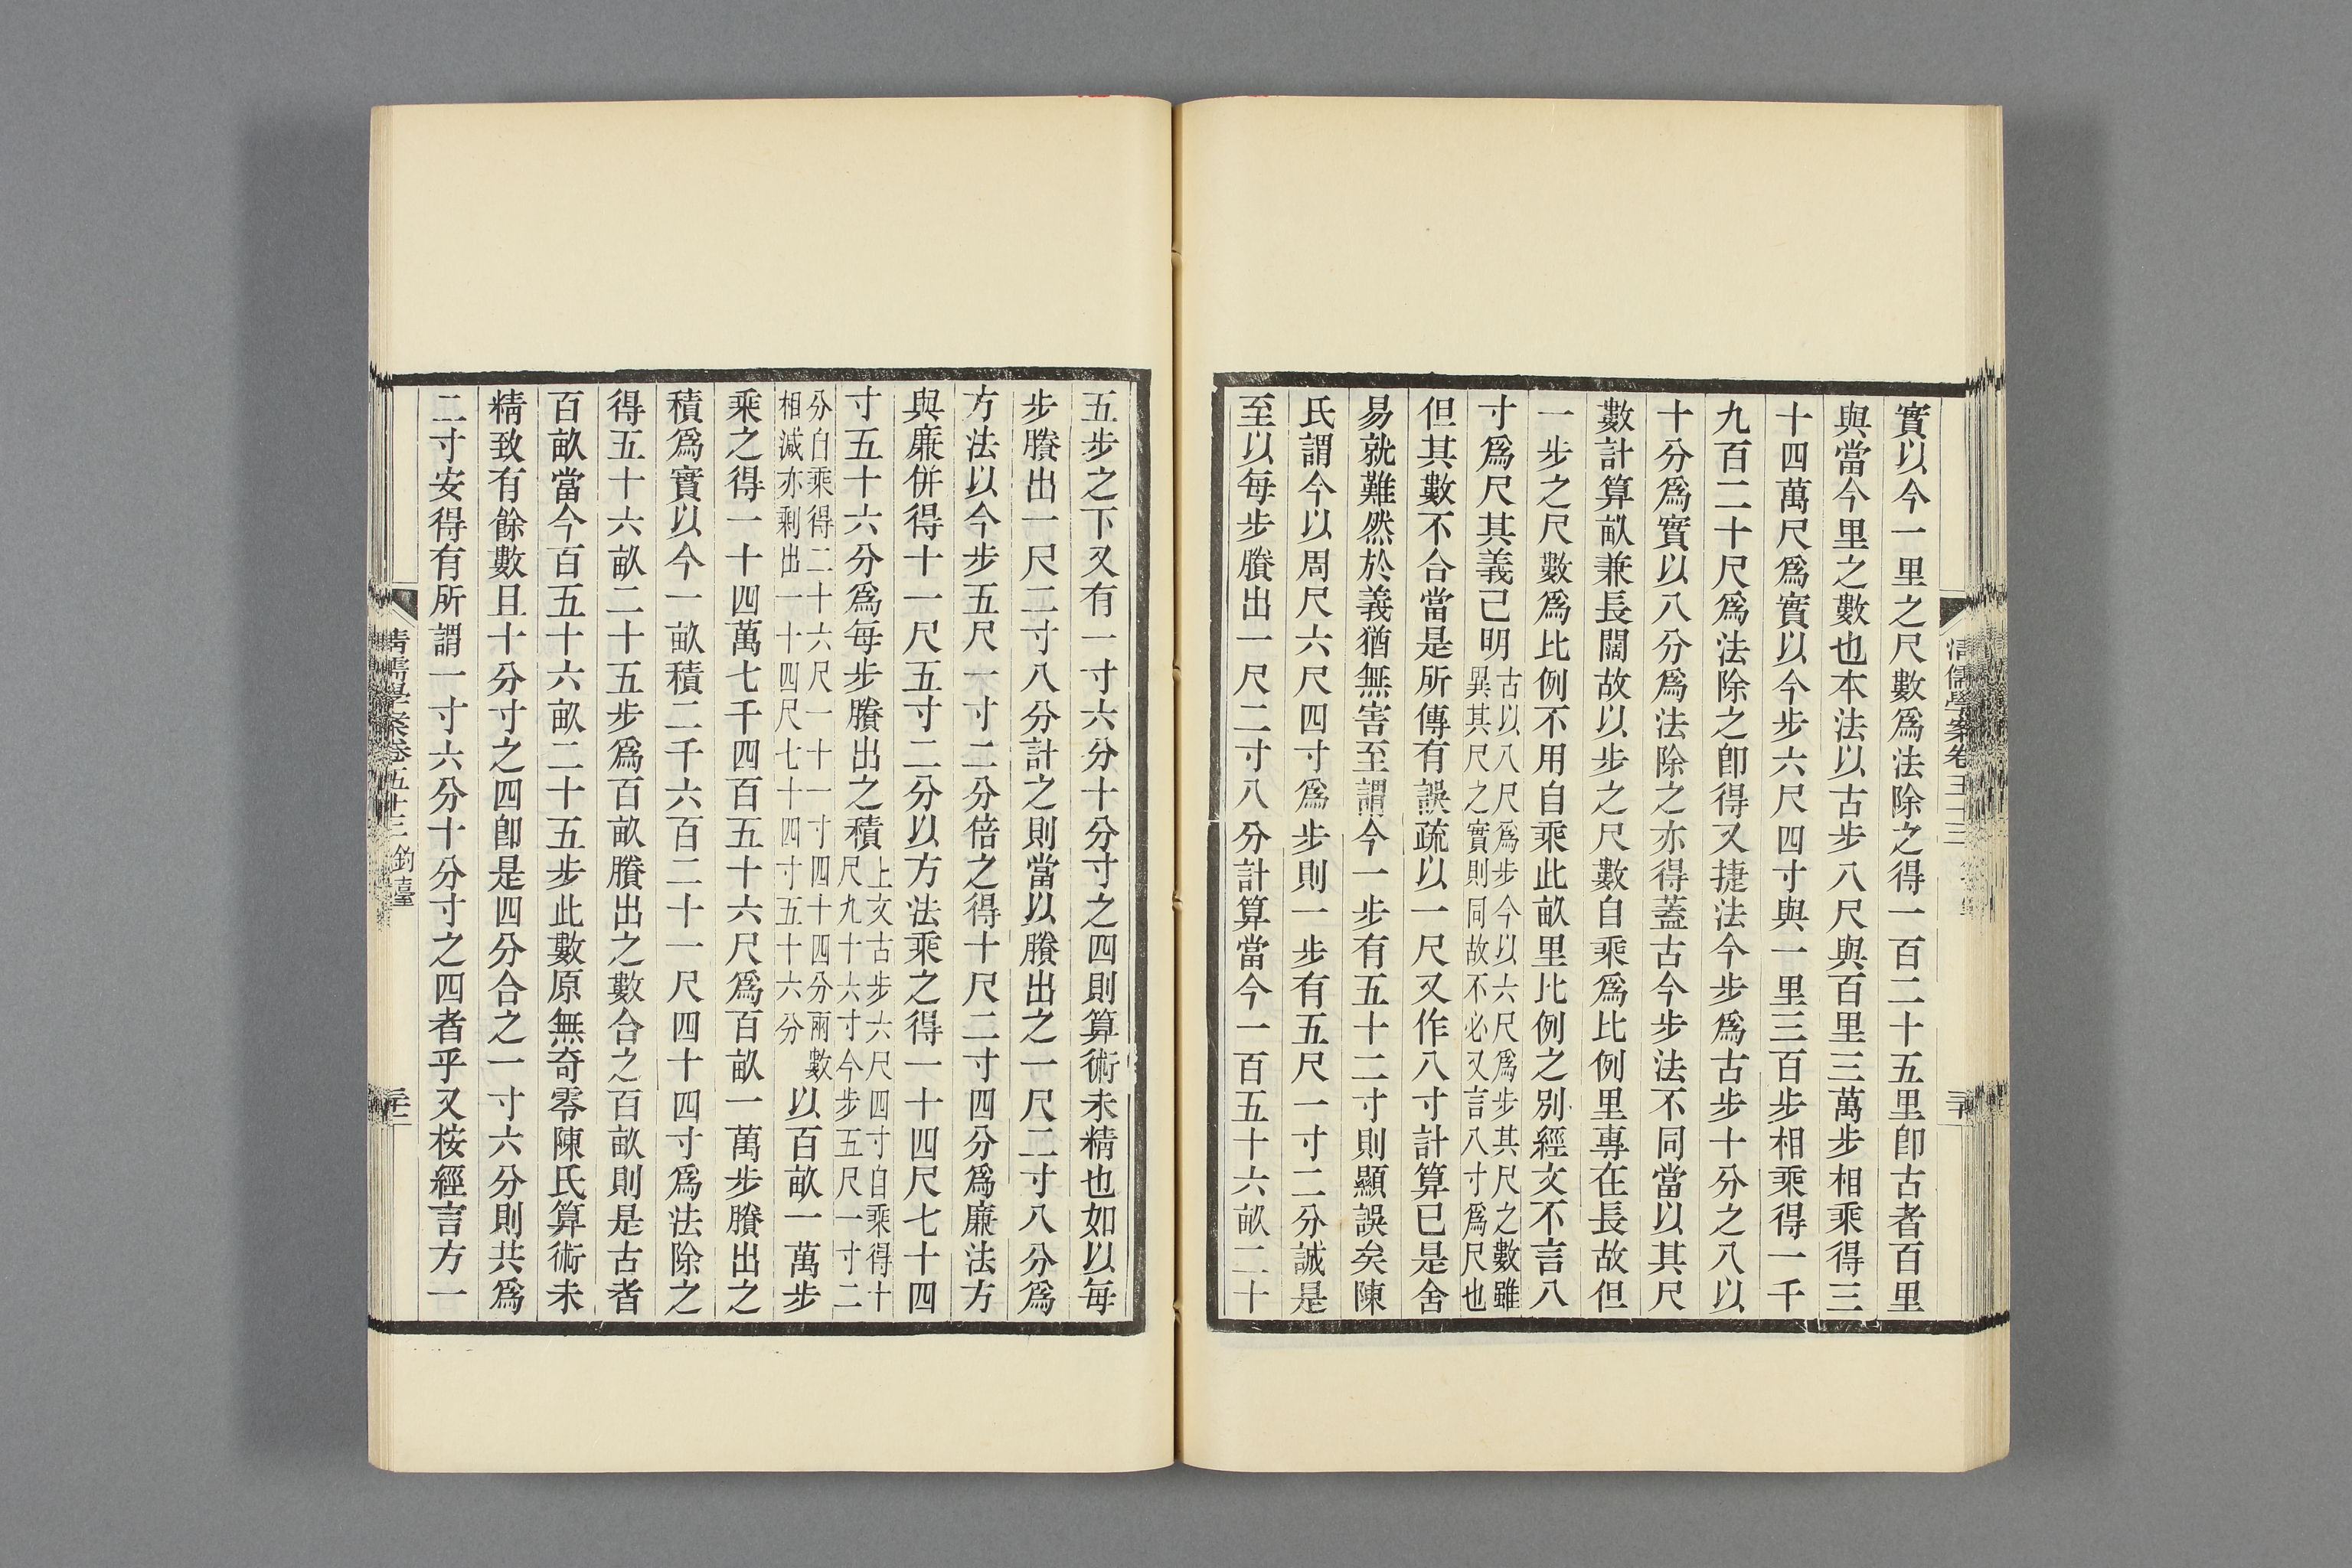 實以今一里之尺數爲法除之得一百二十五里卽古者百里
與當今里之數也本法以古步八尺與百里三萬步相乘得三
十四萬尺爲實以今步六尺四寸與一里三百步相乘得一千
九百二十尺爲法除之卽得又捷法今步爲古步十分之八以
十分爲實以八分爲法除之亦得蓋古今步法不同當以其尺
數計算畝兼長闊故以步之尺數自乘爲比例里專在長故但
一步之尺數爲比例不用自乘此畝里比例之別經文不言八
寸爲尺其義已明古以八尺爲步今以六尺爲步其尺之數雖
異其尺之實則同故不必又言八寸爲尺也
但其數不合當是所傳有誤疏以一尺又作八寸計算已是舍
易就難然於義猶無害至謂今一步有五十二寸則顯誤矣陳
氏謂今以周尺六尺四寸爲步則一步有五尺一寸二分誠是
至以每步賸出一尺二寸八分計算當今一百五十六畝二十
清儒學案卷五十三
三十
五步之下又有一寸六分十分寸之四則算術未精也如以每
步賸出一尺二寸八分計之則當以賸出之一尺二寸八分爲
方法以今步五尺一寸二分倍之得十尺二寸四分爲廉法方
與廉併得十一尺五寸二分以方法乘之得一十四尺七十四
寸五十六分爲每步賸出之積上文古步六尺四寸自乘得十
尺九十六寸今步五尺一寸二
分自乘得二十六尺一十一寸四十四分兩數
相減亦剩出一十四尺七十四寸五十六分
以百畝一萬步
乘之得一十四萬七千四百五十六尺爲百畝一萬步賸出之
積爲實以今一畝積二千六百二十一尺四十四寸爲法除之
得五十六畝二十五步爲百畝賸出之數合之百畝則是古者
百畝當今百五十六畝二十五步此數原無奇零陳氏算術未
精致有餘數且十分寸之四卽是四分合之一寸六分則共爲
二寸安得有所謂一寸六分十分寸之四者乎又桉經言方一
清儒學案卷五十三 釣臺
三十一